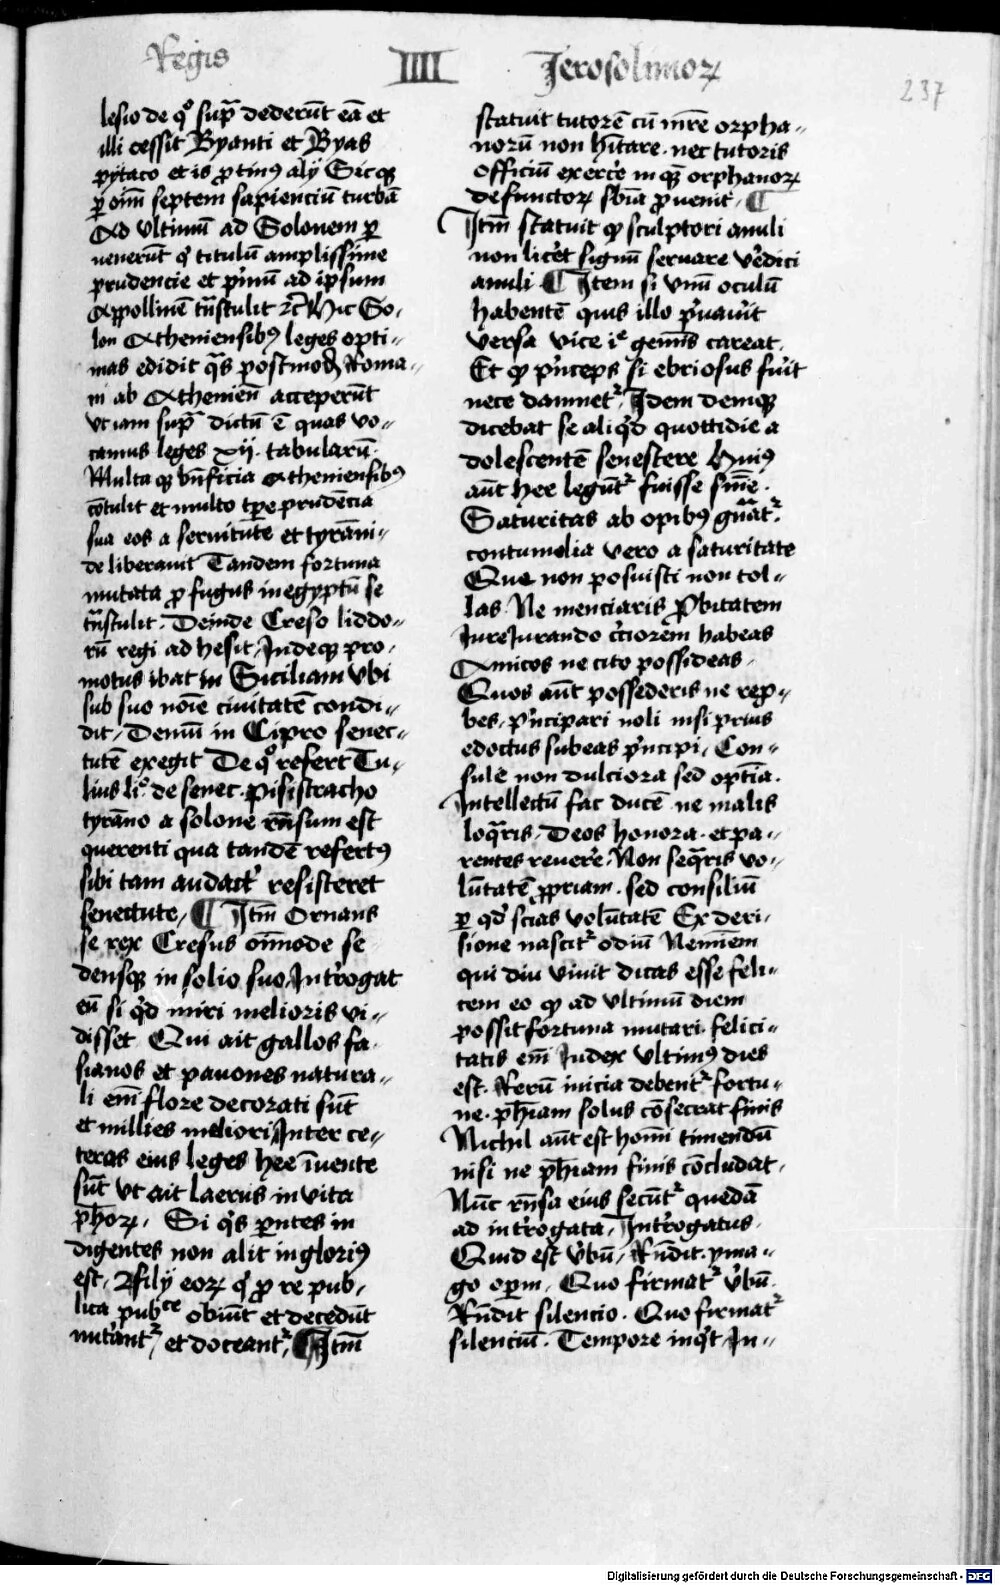 Regis IIII Jerosolimoꝝ 237
lesio de qº sup̄ dederūt eā et
illi cessit Byanti et Byas
pytaco et is ꝓtinꝰ alÿ Sicqꝫ
ꝑ oīm septem sapienciū turbā
Ad vltimū ad Solonem ꝑ
uenerūt qͥ titulū amplissime
prudencie et pͥmū ad ipsum
Appollinē tn̄stulit ꝛc̄ Hic So-
lon Atheniensibꝰ leges opti-
mas edidit qͣs postmodꝫ Roma-
ni ab Athenien̄ acceperūt
vt iam sup̄ dictū ē quas vo-
camus leges xij. tabularū.
Multa qꝫ bn̄ficia Atheniensibꝰ
cōtulit et multo tꝑe prudēcia
sua eos a seruitute et tyrāni-
de liberauit Tandem fortuna
mutata ꝓfugus in egyptū se
tn̄stulit. Deinde Creso liddo-
rū regi adhesit, Indeqꝫ pro-
motus ibat in Siciliam vbi
sub suo noīe ciuitatē condi-
dit, Demū in Cipro senec-
tutē exegit De qº refert Tu-
lius liº. de senec. pisistracho
tyrāno a solone rn̄sum est
querenti qua tandē refertꝰ
sibi tam audactͥ resisteret
senectute, ¶ Itm̄ Ornans
se rex Cresus oīmode se
densqꝫ in solio suo, Intͥrogat
eū si qͥd miri melioris vi-
disset Qui ait gallos fa-
sianos et pauones natura-
li enī flore decorati sūt
et millies meliori, Inter ce-
teras eius leges hee īuente
sūt vt ait laerius in vita
pħoꝝ, Si qͥs parentes in
digentes non alit inglorius
est, ⁊ filÿ eoꝝ qͥ ꝓ re pub-
lica pubᶜᵉ obiūt et decedūt
nutͥantͬ, et doceantͬ, ¶ Itm̄
statuit tutorē cū mr̄e orpha-
norū non hītare. nec tutoris
officiū exercͥe in quē orphanoꝝ
defunctoꝝ sb̄ia ꝓuenit. ¶
Itm̄ statuit qꝫ sculptori anuli
non licͥet signū seruare vͥediti
anuli ¶ Item si vnū oculū
habentē quis illo pͥuauͥit
versa vice iᵉ gemīs careat.
Et qꝫ pͥnceps si ebriosus fuͥit
nece damnetͬ, Idem deniqꝫ
dicebat se aliqͥd quottidie a
dolescentē senescere Huiꝰ
aūt hee leguntͬ fuisse sn̄ie.
Saturitas ab opibꝰ gn̄atͬ.
contumelia vero a saturitate
Que non posuisti non tol-
las. Ne menciaris Probitatem
Iure Iurando cͥciorem habeas
Amicos ne cito possideas.
Quos aūt possederis ne rep-
bes, pͥncipari noli nisi prius
edoctus subeas pͥncipi, Con-
sule non dulciora sed optīa.
Intellectū fac ducē ne malis
loqͣris, Deos honora. et pa-
rentes reuerͥe, Non seqͣris vo-
lūtatē ꝓpriam. sed consiliū
ꝑ qd̓ scias volūtatē Ex deri-
sione nascitͬ odiū Neminem
qui diu viuit dicas esse feli-
cem eo qꝫ ad vltimū diem
possit fortuna mutari. felici-
tatis enī Iudex vltimꝰ dies
est. Rerū inicia debentͬ fortu-
ne. pħiam solus cōsecrat finis
Nichil aūt est homī timendū
nisi ne pħiam finis cōcludat.
Nūc rn̄sa eius secūtͬ quedā
ad intͥrogata, Intͥrogatus.
Quid est vͥbū, Rn̄dit. yma-
go operum, Quo firmatͬ vͥbū.
Rn̄dit silencio. Quo firmatͬ
silenciū. Tempore inqͥt In-
Digitalisierung gefördert durch die Deutsche Forschungsgemeinschaft - DFG